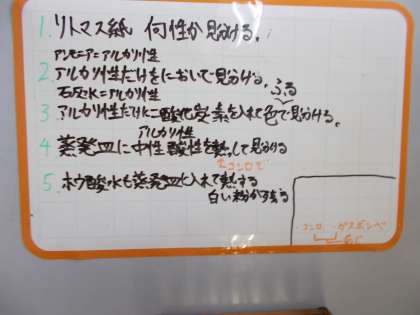 1. リトマス紙 何性か見分ける。
アンモニア=アルカリ性
2. アルカリ性だけをにおいで見分ける。
石灰水=アルカリ性
ふる
3 アルカリ性だけに二酸化炭素を入れて色で見分ける。
アルカリ性
4 蒸発皿に中性酸性を熱して見分ける
↑コンロで
5. ホウ酸水も蒸発皿に入れて熱する
白い粉が残る
・コンロ ・ガスボンベ